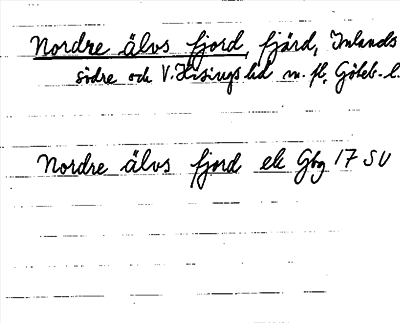 Nordre älvs fjord, fjärd, Inlands
södre och V. Hisings hd m. fl., Göteb. l.
Nordre älvs fjord ek Gbg 17 SV